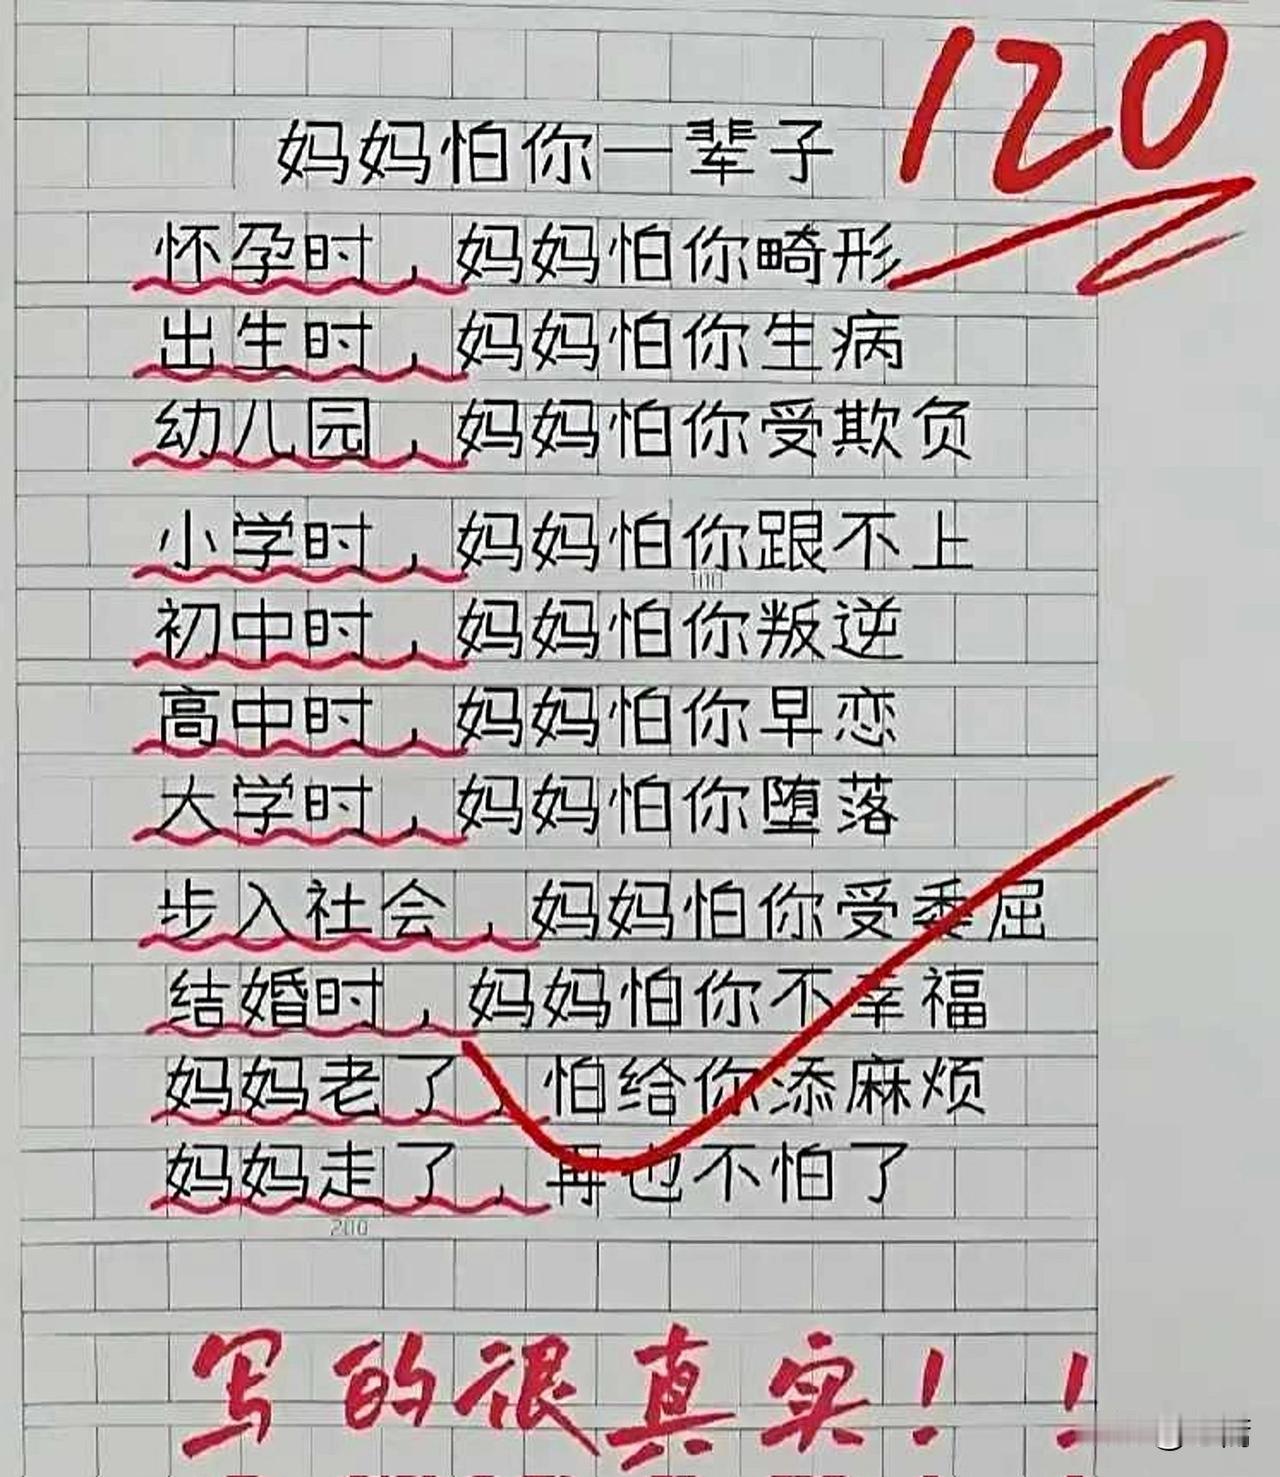 120
妈妈怕你一辈子
怀孕时，妈妈怕你畸形
出生时，妈妈怕你生病
幼儿园，妈妈怕你受欺负
小学时，妈妈怕你跟不上
100
初中时，妈妈怕你叛逆
高中时，妈妈怕你早恋
大学时，妈妈怕你堕落
步入社会，妈妈怕你受委屈
结婚时，妈妈怕你不幸福
妈妈老了，怕给你添麻烦
妈妈走了，再也不怕了
200
写的很真实！！